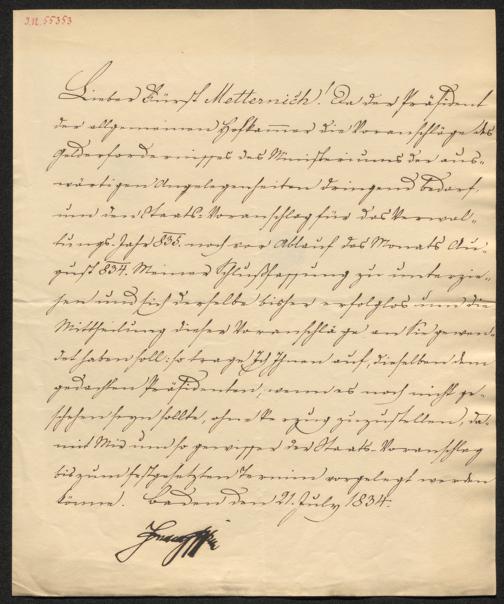 I.N. 55353
Lieber Fürst Metternich! Da der Präsident
der allgemeinen Hofkammer die Voranschläge des
Gelderfordernisses des Ministeriums der aus-
wärtigen Angelegenheiten dringend bedarf,
um den Staats-Voranschlag für das Verwal-
tungs-Jahr 835. noch vor Ablauf des Monats Au-
gust 834. Meiner Schlußfassung zu unterzie-
hen und sich derselbe bisher erfolglos um die
Mittheilung dieser Voranschläge an Sie gewen-
det haben soll: so trage Ich Ihnen auf, dieselben dem
gedachten Präsidenten, wenn es noch nicht ge-
schehen seyn sollte, ohne Verzug zuzustellen, da-
mit Mir um so gewisser der Staats-Voranschlag
bis zum festgesetzten Termin vorgelegt werden
könne. Baden den 21. July 1834.
Franz